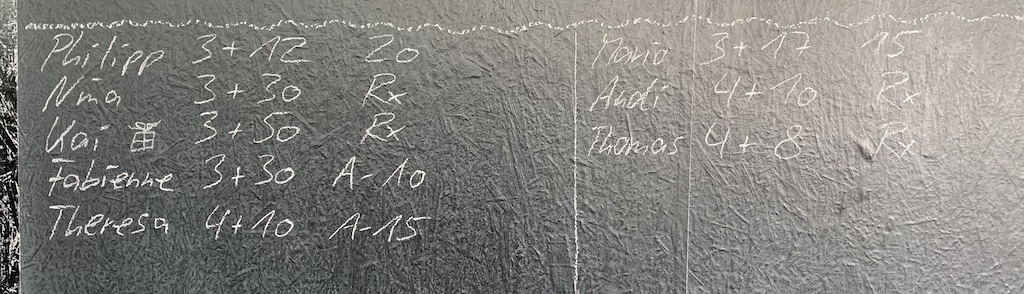 Philipp 3+12 20
Nina 3+30 Rx
Kai 3+50 Rx
Fabienne 3+30 A-10
Theresa 4+10 A-15
Mario 3+17 15
Andi 4+10 Rx
Thomas 4+8 Rx